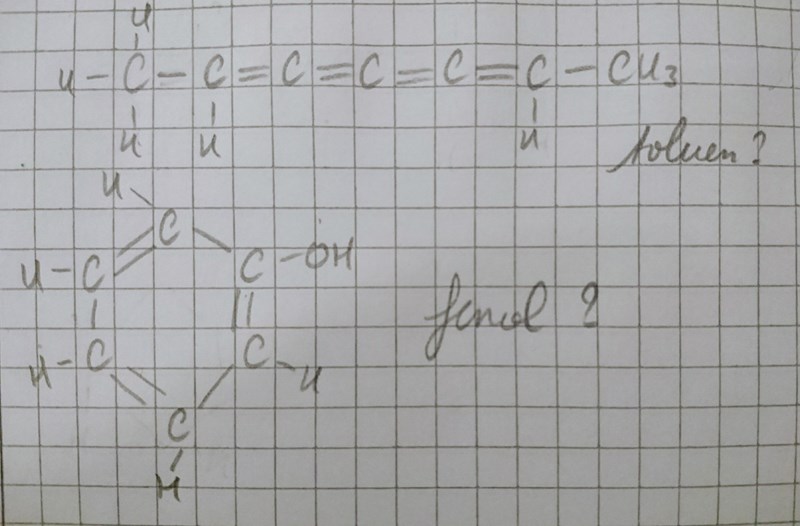 H
H – C – C = C = C = C = C – CH3
H H H
toluen?
H
C
H – C C – OH
fenol ?
H – C C – H
C
H